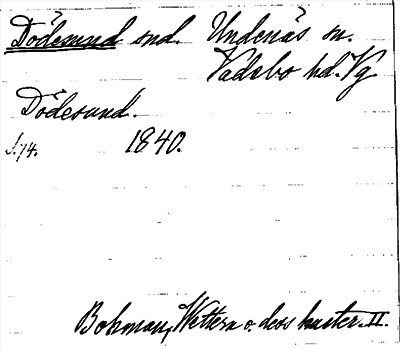 Dödesund snd. Undenäs sn.
Vadsbo hd. Vg.
Dödesund.
S. 74. 1840.
Bohman, Wettern o. dess kuster. II.